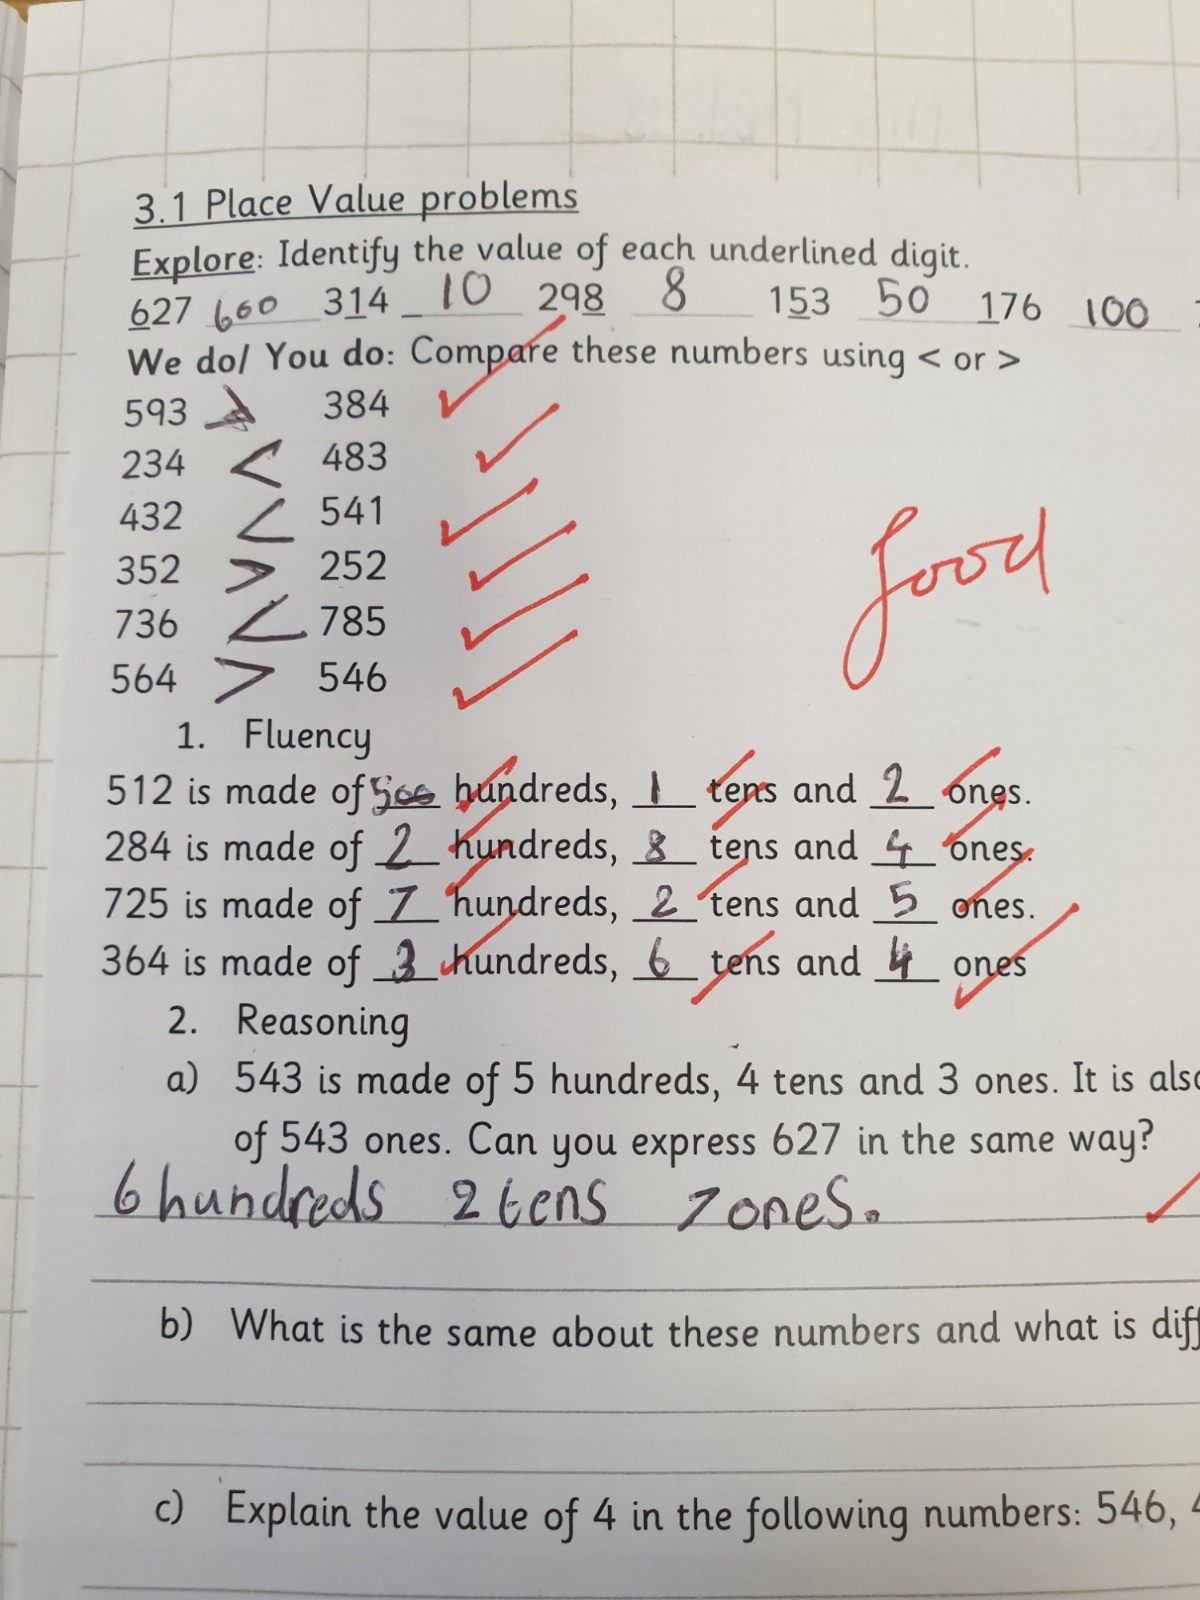 3.1 Place Value problems
Explore: Identify the value of each underlined digit.
627 600 314 10 298 8 153 50 176 100
We do/ You do: Compare these numbers using < or >
593 > 384
234 < 483
432 < 541
352 > 252
736 < 785
564 > 546
Good
1. Fluency
512 is made of 500 hundreds, 1 tens and 2 ones.
284 is made of 2 hundreds, 8 tens and 4 ones.
725 is made of 7 hundreds, 2 tens and 5 ones.
364 is made of 3 hundreds, 6 tens and 4 ones
2. Reasoning
a) 543 is made of 5 hundreds, 4 tens and 3 ones. It is also
of 543 ones. Can you express 627 in the same way?
6 hundreds 2 tens 7 ones.
b) What is the same about these numbers and what is diff
c) Explain the value of 4 in the following numbers: 546,